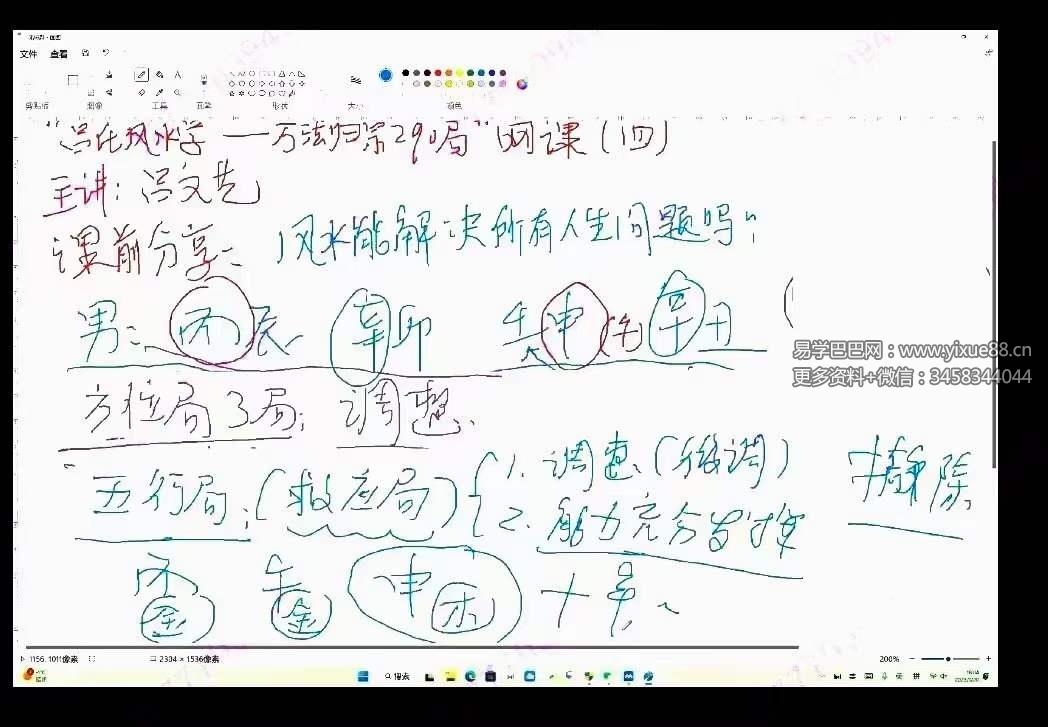 文件 查看
剪贴板 图像 工具 画笔 形状 大小 颜色
"吕氏风水学——万法归宗290局"网课(四)
主讲:吕文艺
课前分享: 风水能解决所有人生问题吗?
男: 丙辰 辛卯 壬申 辛丑
易学巴巴网:www.yixue88.cn
更多资料+微信:3458344044
方位局3局: 调整.
五行局:(救应局){1. 调速(微调) 排除
2. 能力充分发挥
丙 金 金 申 木 十
1156, 1011像素 2304 × 1536像素 200%
搜索